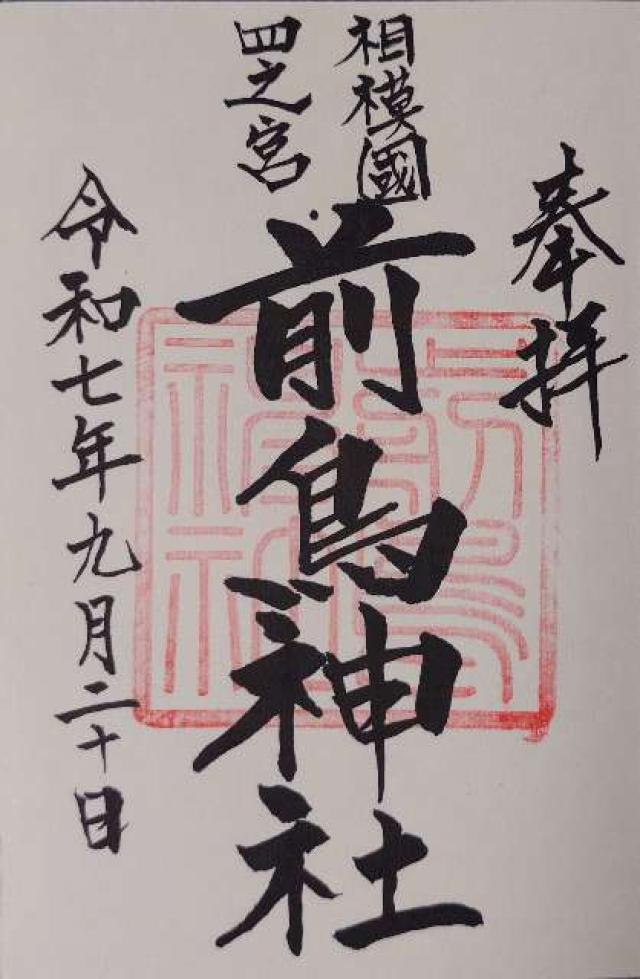 奉拝
相模國
四之宮
前鳥神社
令和七年九月二十日